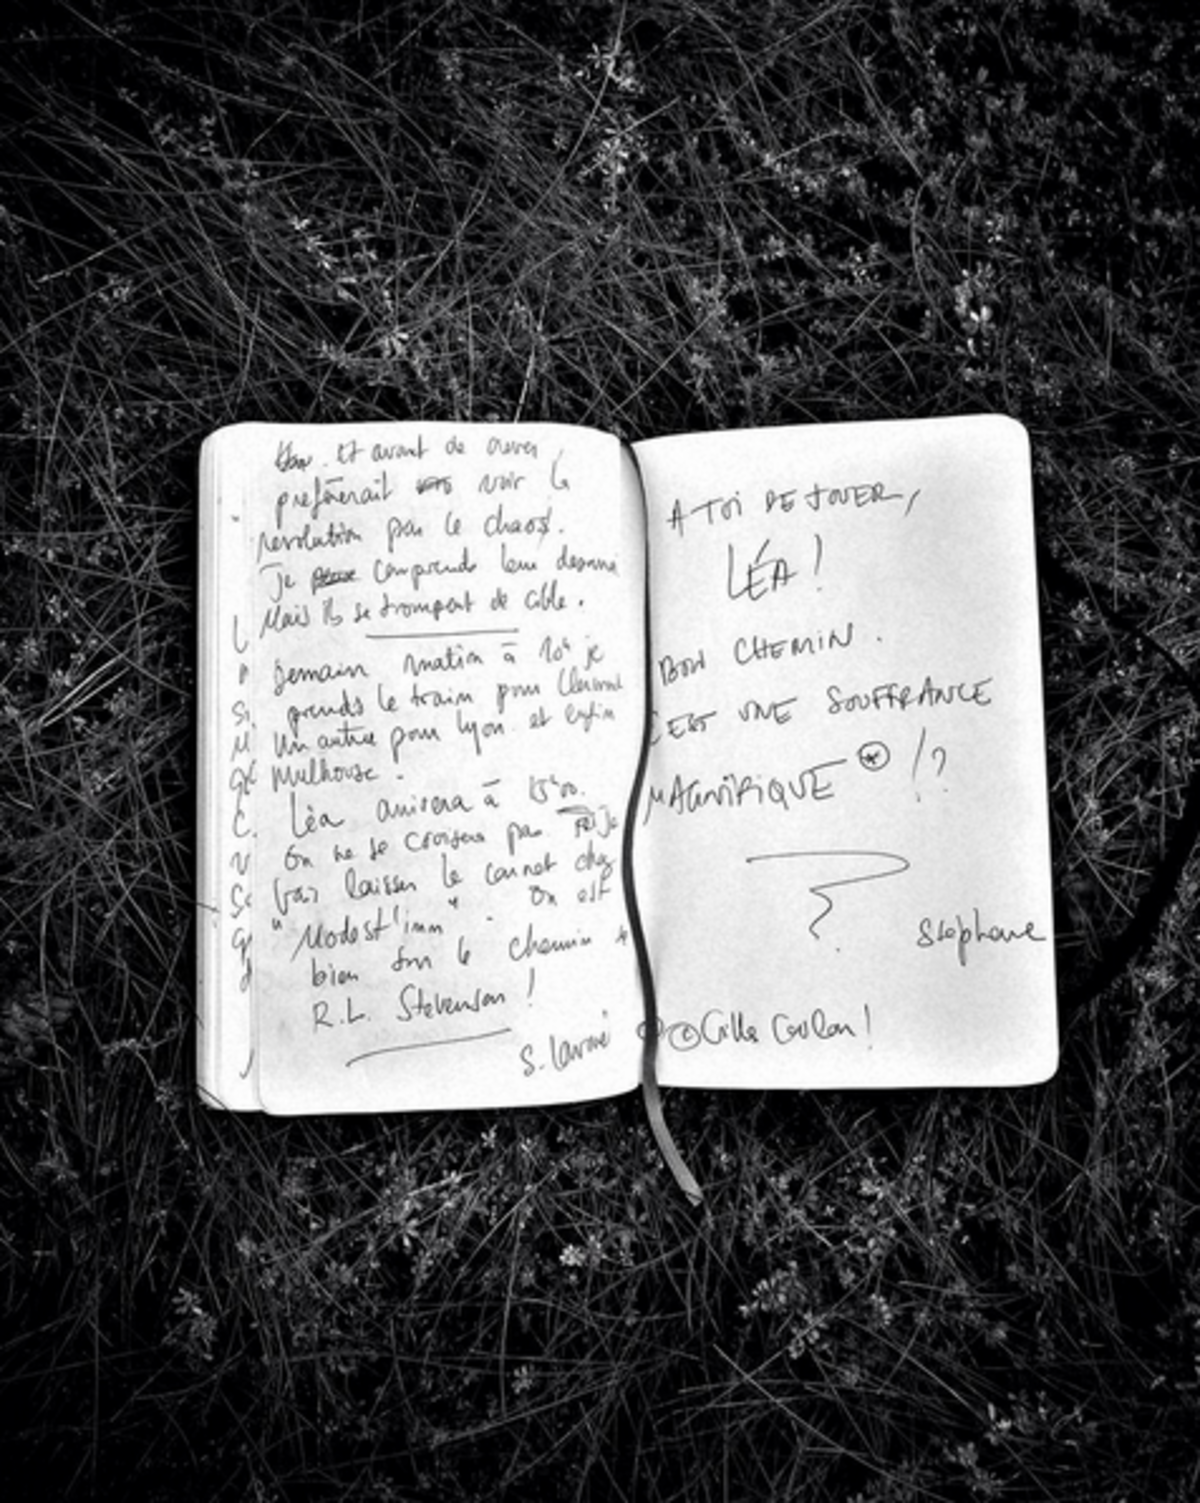 . Et avant de crever,
préférerait voir la
révolution par le chaos.
Je comprends leur
Mais ils se trompent de cible.
Demain matin à 10h je
prends le train pour Clermont
Un autre pour Lyon. et enfin
Mulhouse.
Léa arrivera à 15h00.
On ne se croisera pas. Je
vais laisser le carnet chez
"Modest'inn". On est
bien sur le chemin
R.L. Stevenson !
S. Lavoué
A TOI DE JOUER,
LÉA !
BON CHEMIN.
C'EST UNE SOUFFRANCE
MAGNIFIQUE * !?
Stéphane
© Gilles Coulon !